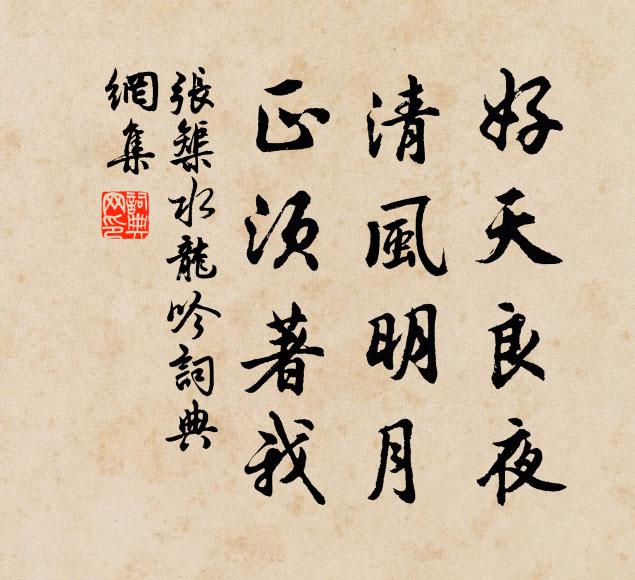 好天良夜
清風明月
正須著我
張榘水龍吟詞典
網集
詞典網印